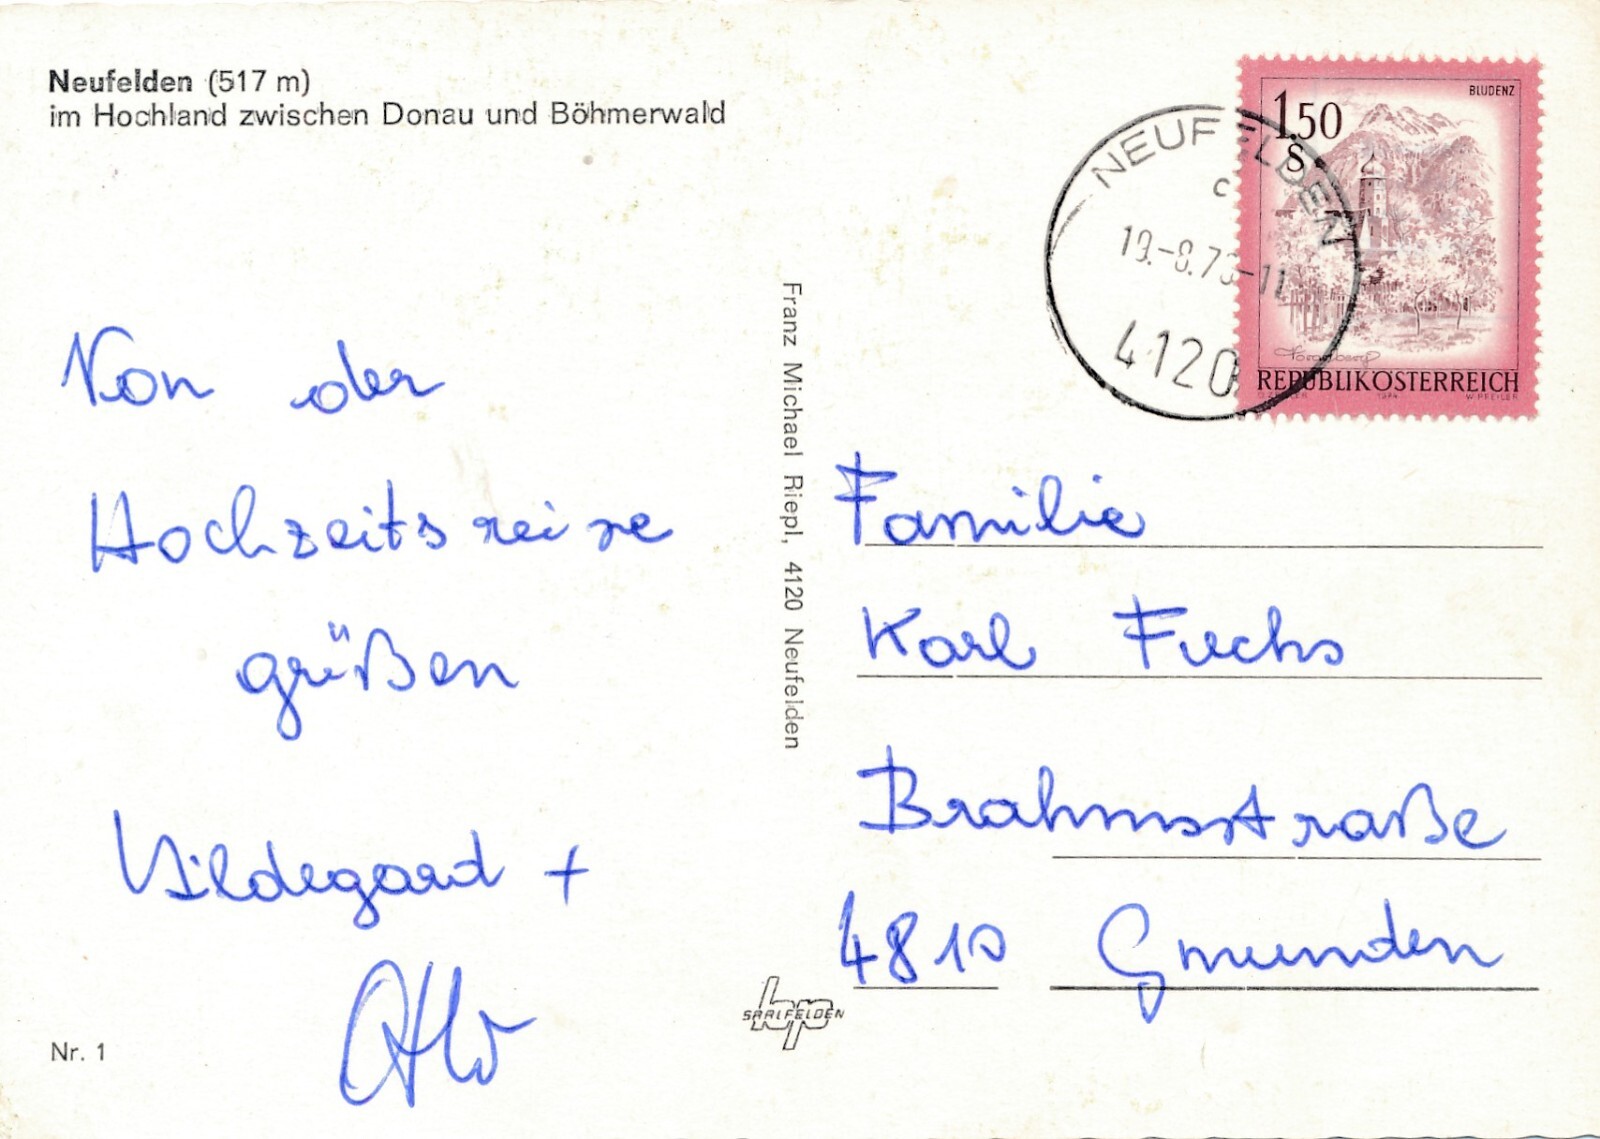 Neufelden (517 m)
im Hochland zwischen Donau und Böhmerwald
Von der
Hochzeitsreise
grüßen
Hildegard +
Otto
Nr. 1
Franz Michael Riepl, 4120 Neufelden
SAALFELDEN
NEUFELDEN
c
4120
BLUDENZ
1.50
S
Vorarlberg
REPUBLIK ÖSTERREICH
W. PFEILER
Familie
Karl Fuchs
Brahmsstraße
4810 Gmunden